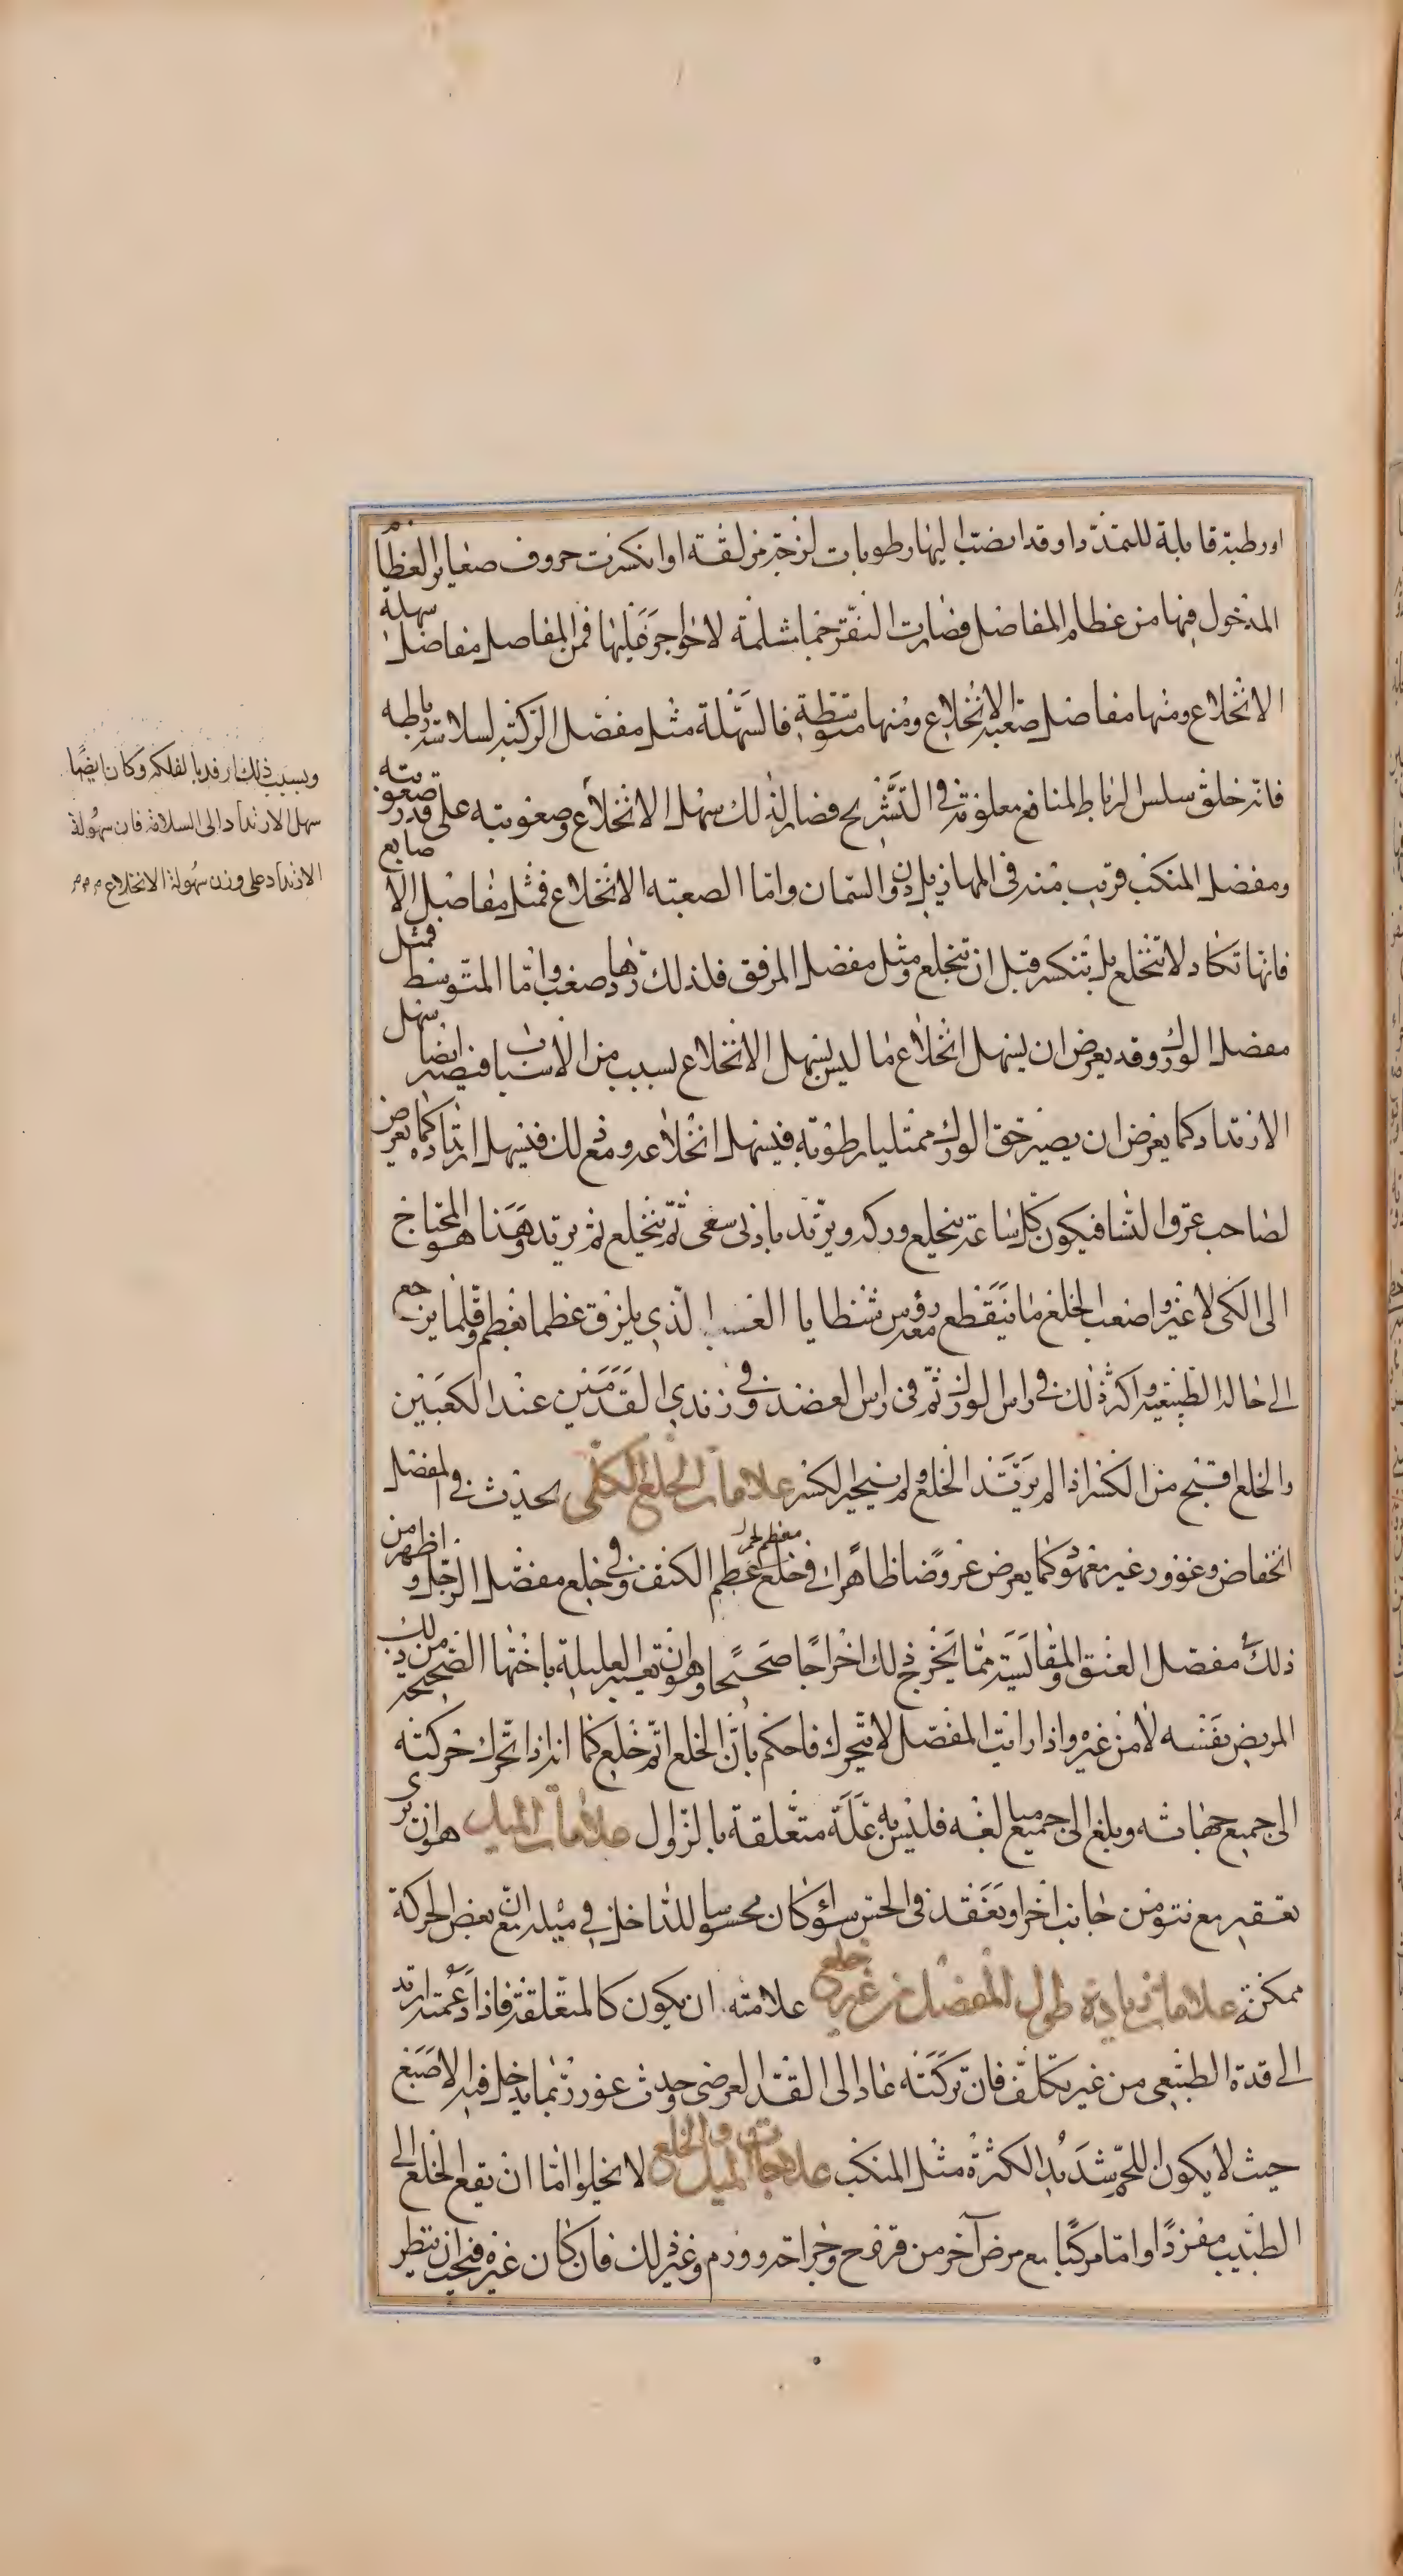 او رطبة قابلة للتمدد او قد انصب اليها رطوبات لزجة مزلقة او انكسرت حروف صغار العظام
المدخول فيها من عظام المفاصل فصارت النقر جما مثلمة لا حواجز عليها فمن المفاصل مفاصل سهلة
الانخلاع ومنها مفاصل صعبة الانخلاع ومنها متوسطة فالسهلة مثل مفصل الركبة لسلاسة رباطه
فانه خلق سلس الرباط لمنافع معلومة في التشريح فصار لذلك سهل الانخلاع وصعوبته على قدر صعوبته
ومفصل المنكب قريب منه في المهازيل دون السمان واما الصعبة الانخلاع فمثل مفاصل الاصابع
فانها تكاد لا تنخلع بل تنكسر قبل ان تنخلع ومثل مفصل المرفق فلذلك ردها صعب واما المتوسط فمثل
مفصل الورك وقد يعرض ان يسهل انخلاع ما ليس يسهل الانخلاع لسبب من الاسباب فيصير ايضا سهل
الارتداد كما يعرض ان يصير حق الورك ممتليا رطوبة فيسهل انخلاعه ومع ذلك فيسهل ارتداده كما يعرض
لصاحب عرق النسا فيكون كل ساعة ينخلع وركه ويرتد بادنى سعى ثم ينخلع ثم يرتد وهذا هو المحتاج
الى الكى لا غير واصعب الخلع ما ينقطع معه رؤس شظايا العسب الذي يلزق عظما بعظم وقلما يرجع
الى حاله الطبيعية واكثر ذلك في راس الورك ثم في راس العضد وفي زندي القدمين عند الكعبين
والخلع اقبح من الكسر اذا لم يرتد الخلع ولم ينجبر الكسر علامات الخلع الكلى يحدث في المفصل
انخفاض وغوور غير معهود كما يعرض عروضا ظاهرا في خلع عظم الكتف وفي خلع مفصل الرجل واظهر من
ذلك مفصل العنق والمقايسة مما يخرج ذلك اخراجا صحيحا وهو ان تعتبر العليلة باختها الصحيحة من ذلك
المريض بنفسه لا من غيره واذا رايت المفصل لا يتحرك فاحكم بان الخلع اتم خلع كما انه اذا تحرك حركته
الى جميع جهاته وبلغ الى جميع مبالغه فليس به علة متعلقة بالزوال علامات الميل هو ان ترى
تقعير مع نتو من جانب اخر او تفقد في الحس سوائ كان محسوسا للداخل في ميله ان مع بعض الحركة
ممكنة علامات زيادة طول المفصل من غير خلع علامته ان يكون كالمتعلقة فاذا دعمته ارتد
الى قده الطبيعى من غير تكلف فان تركته عاد الى القد العرضى وحدث غور ربما يدخل فيه الاصبع
حيث لا يكون اللحم شديد الكثرة مثل المنكب علاجات الميل والخلع لا يخلوا اما ان يقع الخلع الى
الطبيب مفردا او اما مركبا مع مرض آخر من قرح وجراحة وورم وغير ذلك فان كان غيره فيجب ان ينظر
وبسبب ذلك ارفد بالفلكة وكان ايضا
سهل الارتداد الى السلامة فان سهولة
الارتداد على وزن سهولة الانخلاع